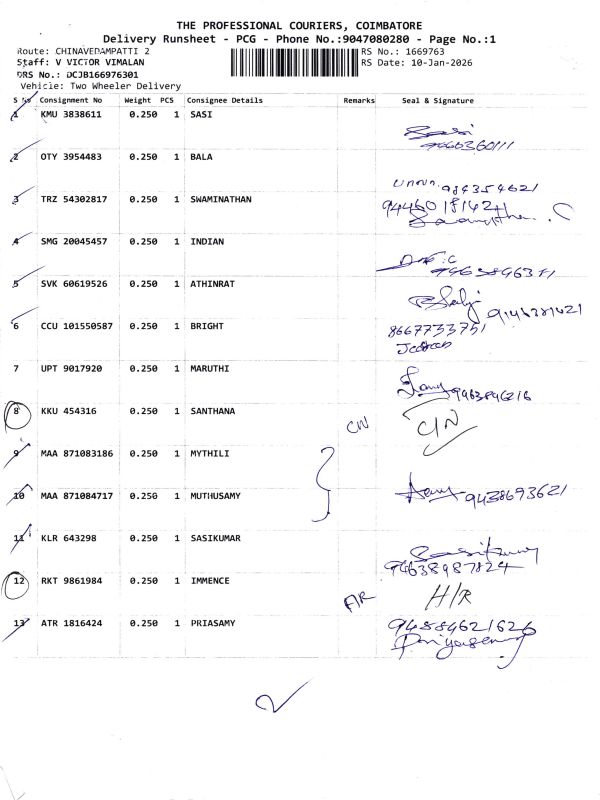 THE PROFESSIONAL COURIERS, COIMBATORE
Delivery Runsheet - PCG - Phone No.:9047080280 - Page No.:1
Route: CHINAVEDAMPATTI 2
RS No.: 1669763
Staff: V VICTOR VIMALAN
RS Date: 10-Jan-2026
DRS No.: DCJB166976301
Vehicle: Two Wheeler Delivery
S No Consignment No Weight PCS Consignee Details Remarks Seal & Signature
1 KMU 3838611 0.250 1 SASI
Sasi
2 OTY 3954483 0.250 1 BALA
3 TRZ 54302817 0.250 1 SWAMINATHAN
4 SMG 20045457 0.250 1 INDIAN
5 SVK 60619526 0.250 1 ATHINRAT
6 CCU 101550587 0.250 1 BRIGHT
8667733751
7 UPT 9017920 0.250 1 MARUTHI
9963896216
8 KKU 454316 0.250 1 SANTHANA CN C/N
9 MAA 871083186 0.250 1 MYTHILI
10 MAA 871084717 0.250 1 MUTHUSAMY
9438693621
11 KLR 643298 0.250 1 SASIKUMAR
94638987824
12 RKT 9861984 0.250 1 IMMENCE
13 ATR 1816424 0.250 1 PRIASAMY
94884621626